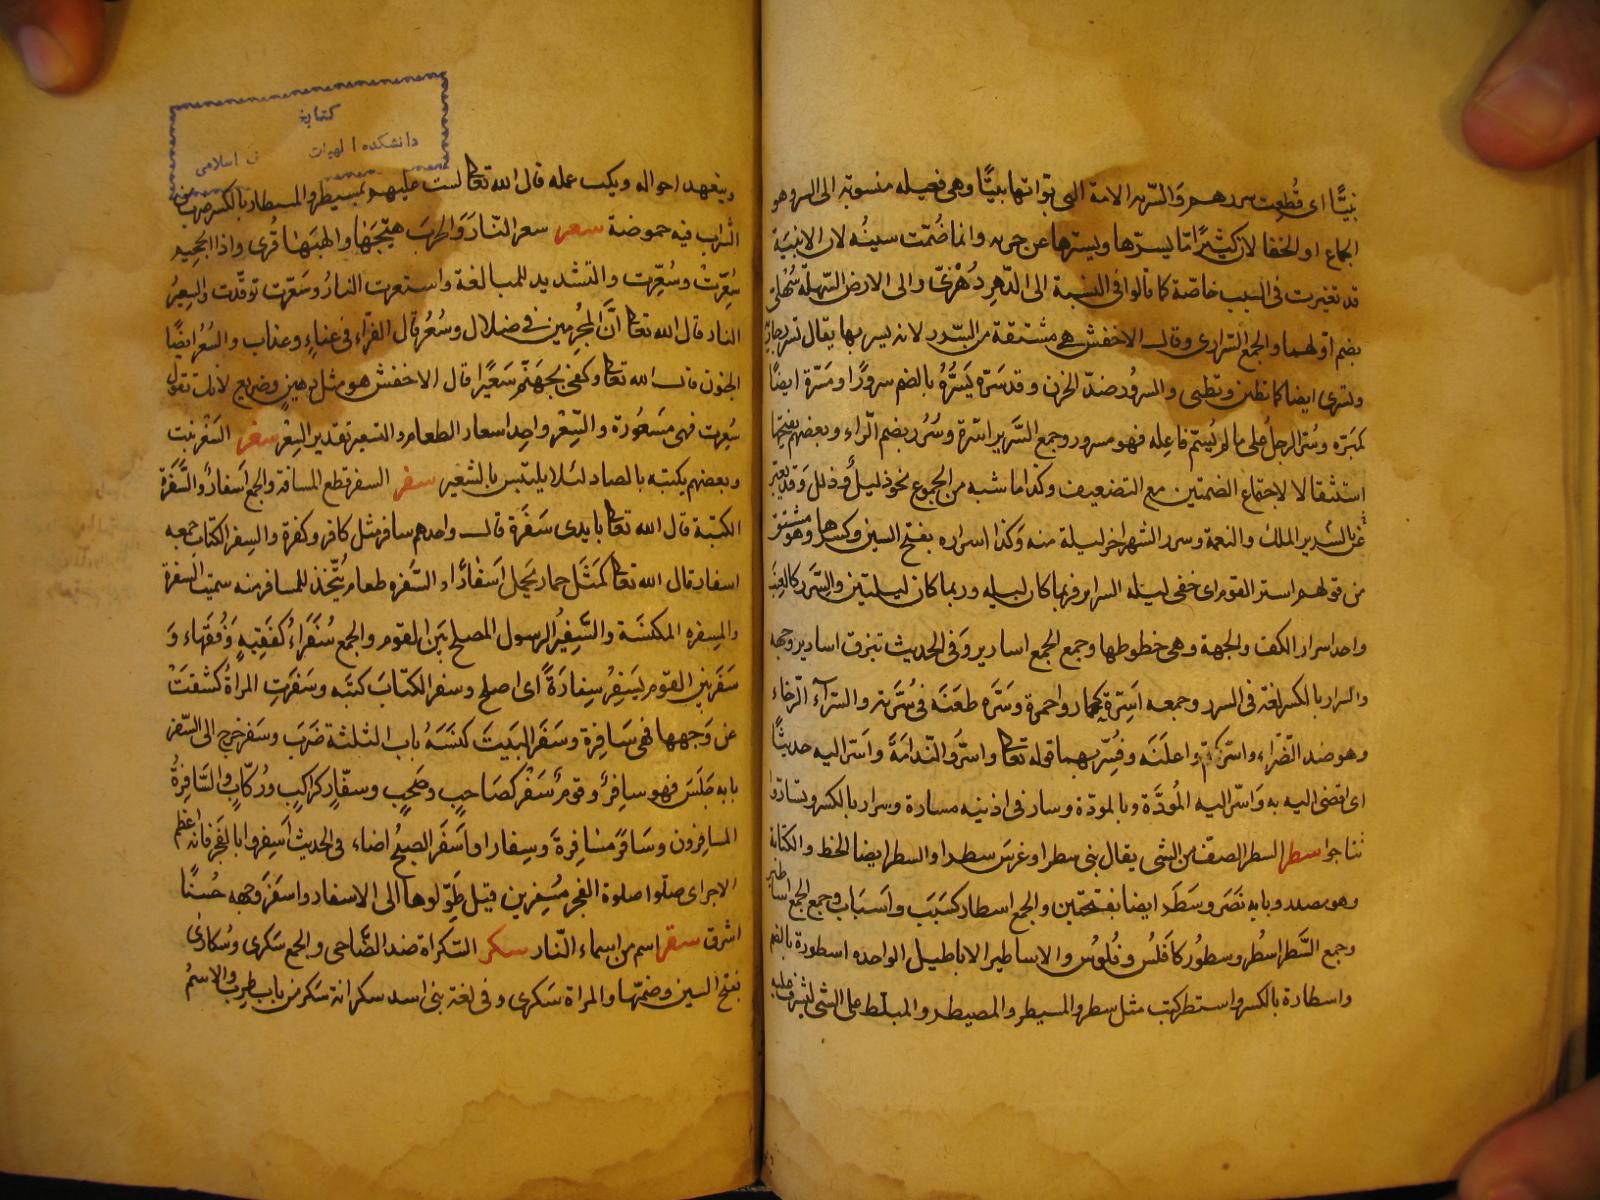 نبيًّا اى قُطِعت سررهم وَالسّرية الامة التى بوّاتها بيتًا وهى فعيله منسوبة الى السر وهو
الجماع او الخفا لان كثيرًا مّا يسرّها ويسترها عن حرته وانما ضُمّت سينُه لان الابنيَة
قد تغيّرت فى النسب خاصّة كما قالوا فى النسبة الى الدّهر دُهْرىّ والى الارض السّهلة سُهْلىّ
بضم اوّلهما والجمع السّرارى وقال الاخفش هى مشتقة من السّرور لانه يسر بها يقال تسرر جارية
وتسرى ايضا كما تظنن وتظنى والسرور ضدّ الحزن وقد سَرّه يَسُرُّهُ بالضم سرورًا ومَسَرّة ايضًا
كمبَرّه وسُرّ الرجلُ على ما لم يُسمّ فاعله فهو مسرور وجمع السَّرير اسّرة وسُرُر بضم الرّاء وبعضهم يفتحها
استثقالا لاجتماع الضمتين مع التضعيف وكذا ما اشبه من الجموع نحو ذليل وذلل وَقد يعبّر
عن بالسّرير الملك والنعمة وسرر الشهر اخر ليلة منه وَكذا سراره بفتح السين وكسرها وهو مشتق
من قولهم استسر القمر اى خفى ليلة السرار فربما كان ليله وربما كان ليلتين والسّرر كالعِنَب
واحد اسرار الكف والجبهة وهى خطوطها وجمع الجمع اسارير وَفى الحديث تبرق اسارير وجهه
والسرار بالكسر لغة فى السرر وجمعه اَسِرّة كحمار واحمرة وسَرّه طعَنَه فى سُرّته والسّرآء الرّخاء
وهو ضد الضّراء واسرّ كتمَ واعلَنَه وفُسِّر بهما قوله تعالى واسَرُّوا النّدامَةَ واَسرّ اليه حديثًا
اى افضى اليه به وَاسّر اليه المُودَّة وبالمودّة وسار فى اذنيه مسارة وسرار بالكسر وتسارّوا
تناجوا سطر السطر الصفّ من الشى يقال بنى سطرا وغرسَ سطرا والسطر ايضا الخط والكتابة
وهو مصدر وبابه نَصَر وسَطَر ايضا بفتحتين والجمع اسطار كسَبَب واَسبَاب وجمع الجمع اساطير
وجمع السَّطر اسطُر وسطُور كاَفلُس وفُلوُس والاساطير الاباطيل الواحده اسطورة بالضم
واسطارة بالكسر واستطر كتب مثل سطر والمسيطر والمصيطر والمسلّط على الشى ليشرف عليه
ويتعهد احواله ويكتب عمله قال الله تعالى لست عليهم بمسيطر والمسطار بالكسر ضرب من
الشراب فيه حموضة سعر سعر النّارَ وَالحربَ هيّجَها والهبَها قُرى واذا الجحيم
سُعِرّتْ وسُعِّرت والتشديد للمبالغة واستعرت النارُ وسَعَّرت توقّدت والسعِيرُ
النار قال الله تعالى اِنَّ المُجرِمين فى ضلال وسُعُر قال الفرّاء فى عناءٍ وعذاب والسُعُر ايضًا
الجنون قال الله تعالى وكفى بجهنّم سَعيرًا قال الاخفش هو مثل دهينٍ وصَريع لانك تقول
سُعِرت فهى مَسعُورَة والسِّعْر واحِد اسعار الطعام والتسعير تقدير السِعْر سعتر السَعْتر نبت
وبعضهم يكتبه بالصاد لئلا يلتبس بالشعير سفر السفر قطع المسافة والجمع اَسفار وَالسَّفَرَة
الكتبَة قال الله تعالى بايدى سَفَرة قال واحدهم سافر مثل كافر وكفرة والسِفر الكتاب جمعه
اسفار قال الله تعالى كَمَثَل حمار يَحمِل اَسفارًا والسُّفره طعام يُتّخذ للمسافر منه سميت السفرة
والمِسفره المكنسَة والسَّفِيُر الرسول المصلح بَيَن القوم والجمع سُفَراءُ كفَقيِه وَفُقَهَاء وَ
سَفَر بَين القوم يَسفِرُ سِفارَةً اى اصلح وسفر الكتابَ كتبَه وسَفَرتِ المراةُ كشفَتْ
عن وَجهها فهى سَافِرة وسَفَر البَيتَ كنسَهُ باب الثلثة ضَرَب وسَفر خرج الى السّفر
بابه جَلَسَ فهو سافِر وقومٌ سَفْر كصَاحبٍ وصَحبٍ وسفّارٍ كراكبٍ ورُكّابٍ والسَّافِرةُ
المسافِرون وسَافَر مسَافِرةً وسِفارا واَسفَر الصبحُ اضاء فى الحديث اَسفِروا بالفجر فانه اعظم
الاجر اى صلّوا صلوة الفجر مُسفِرين وقيل طَوِّلوها الى الاسفار واسفَرَ وجهه حُسنًا
اشرق سقر اسم من اسماء النّار سكر السّكراة ضد الصَّاحى والجمع سَكرى وسُكارَى
بفتح السين وضمّها والمراة سَكرى وفى لغة بنى اسد سكرانة سَكر من باب طرِب والاسمُ
كتابخ
دانشكده الهيات
ف اسلامى